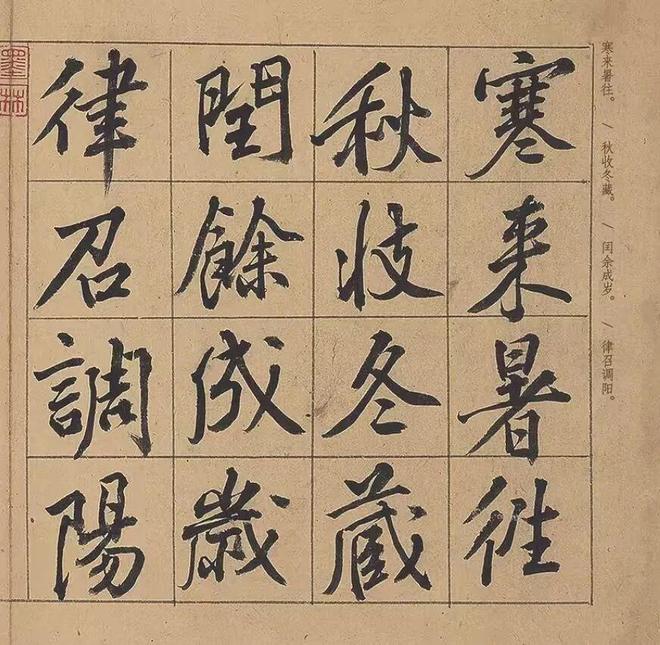 寒来暑往
秋收冬藏
閏餘成歲
律召調陽
寒来暑往。／秋收冬藏。／闰余成岁。／律召调阳。
墨林